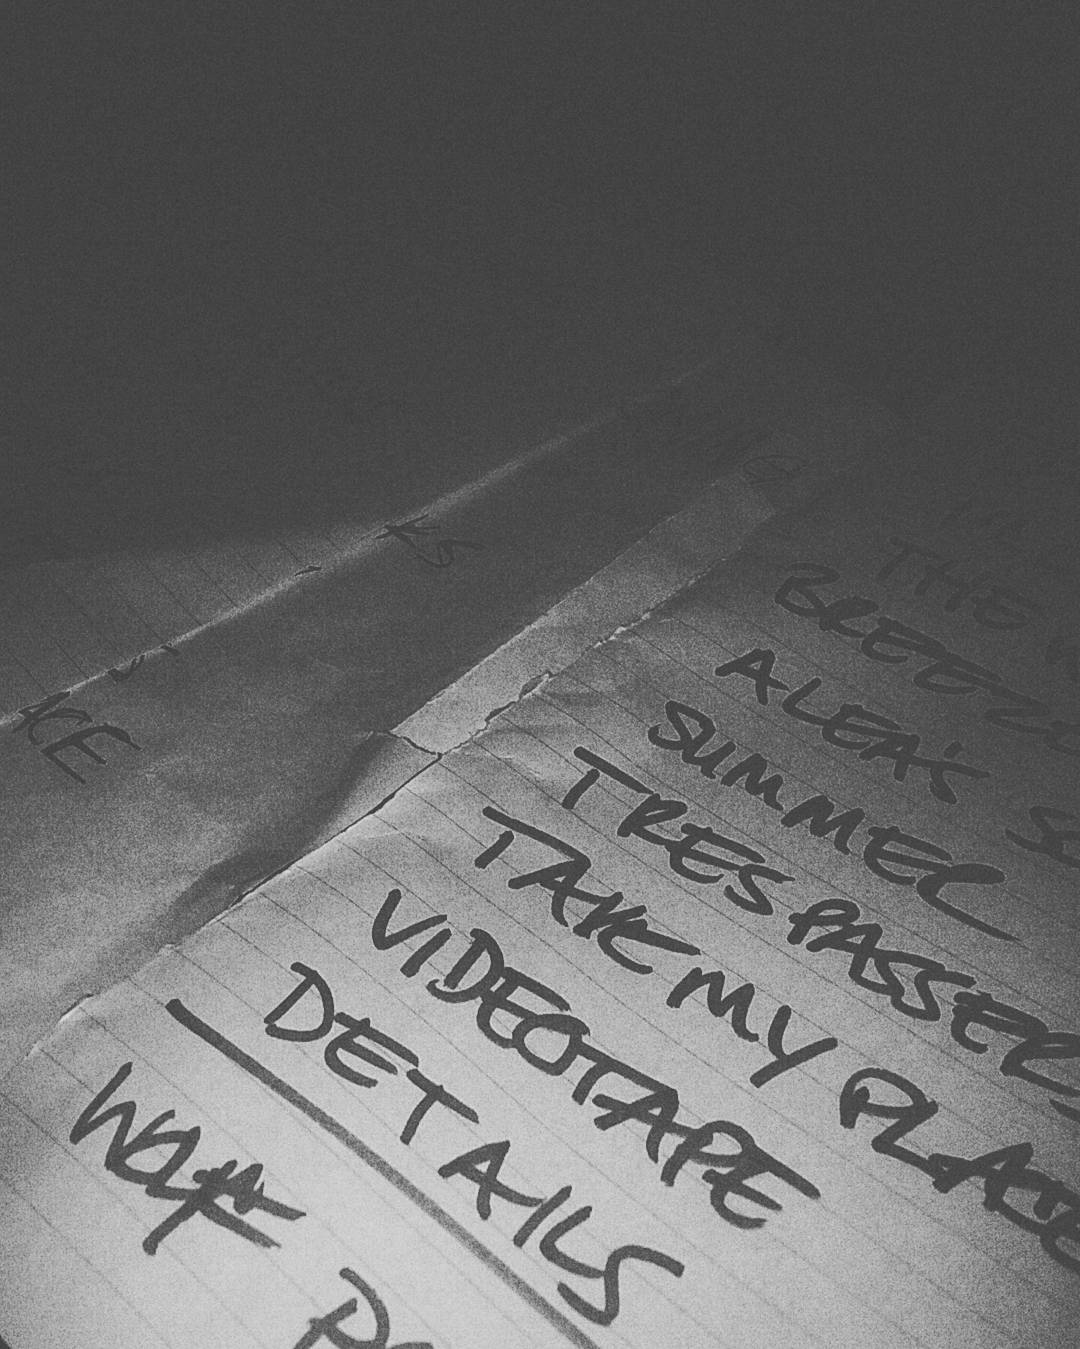 KS
ACE
THE
ALEA'S
SUMMER
TRESPASSER
TAKE MY PLACE
VIDEOTAPE
DETAILS
WOLF